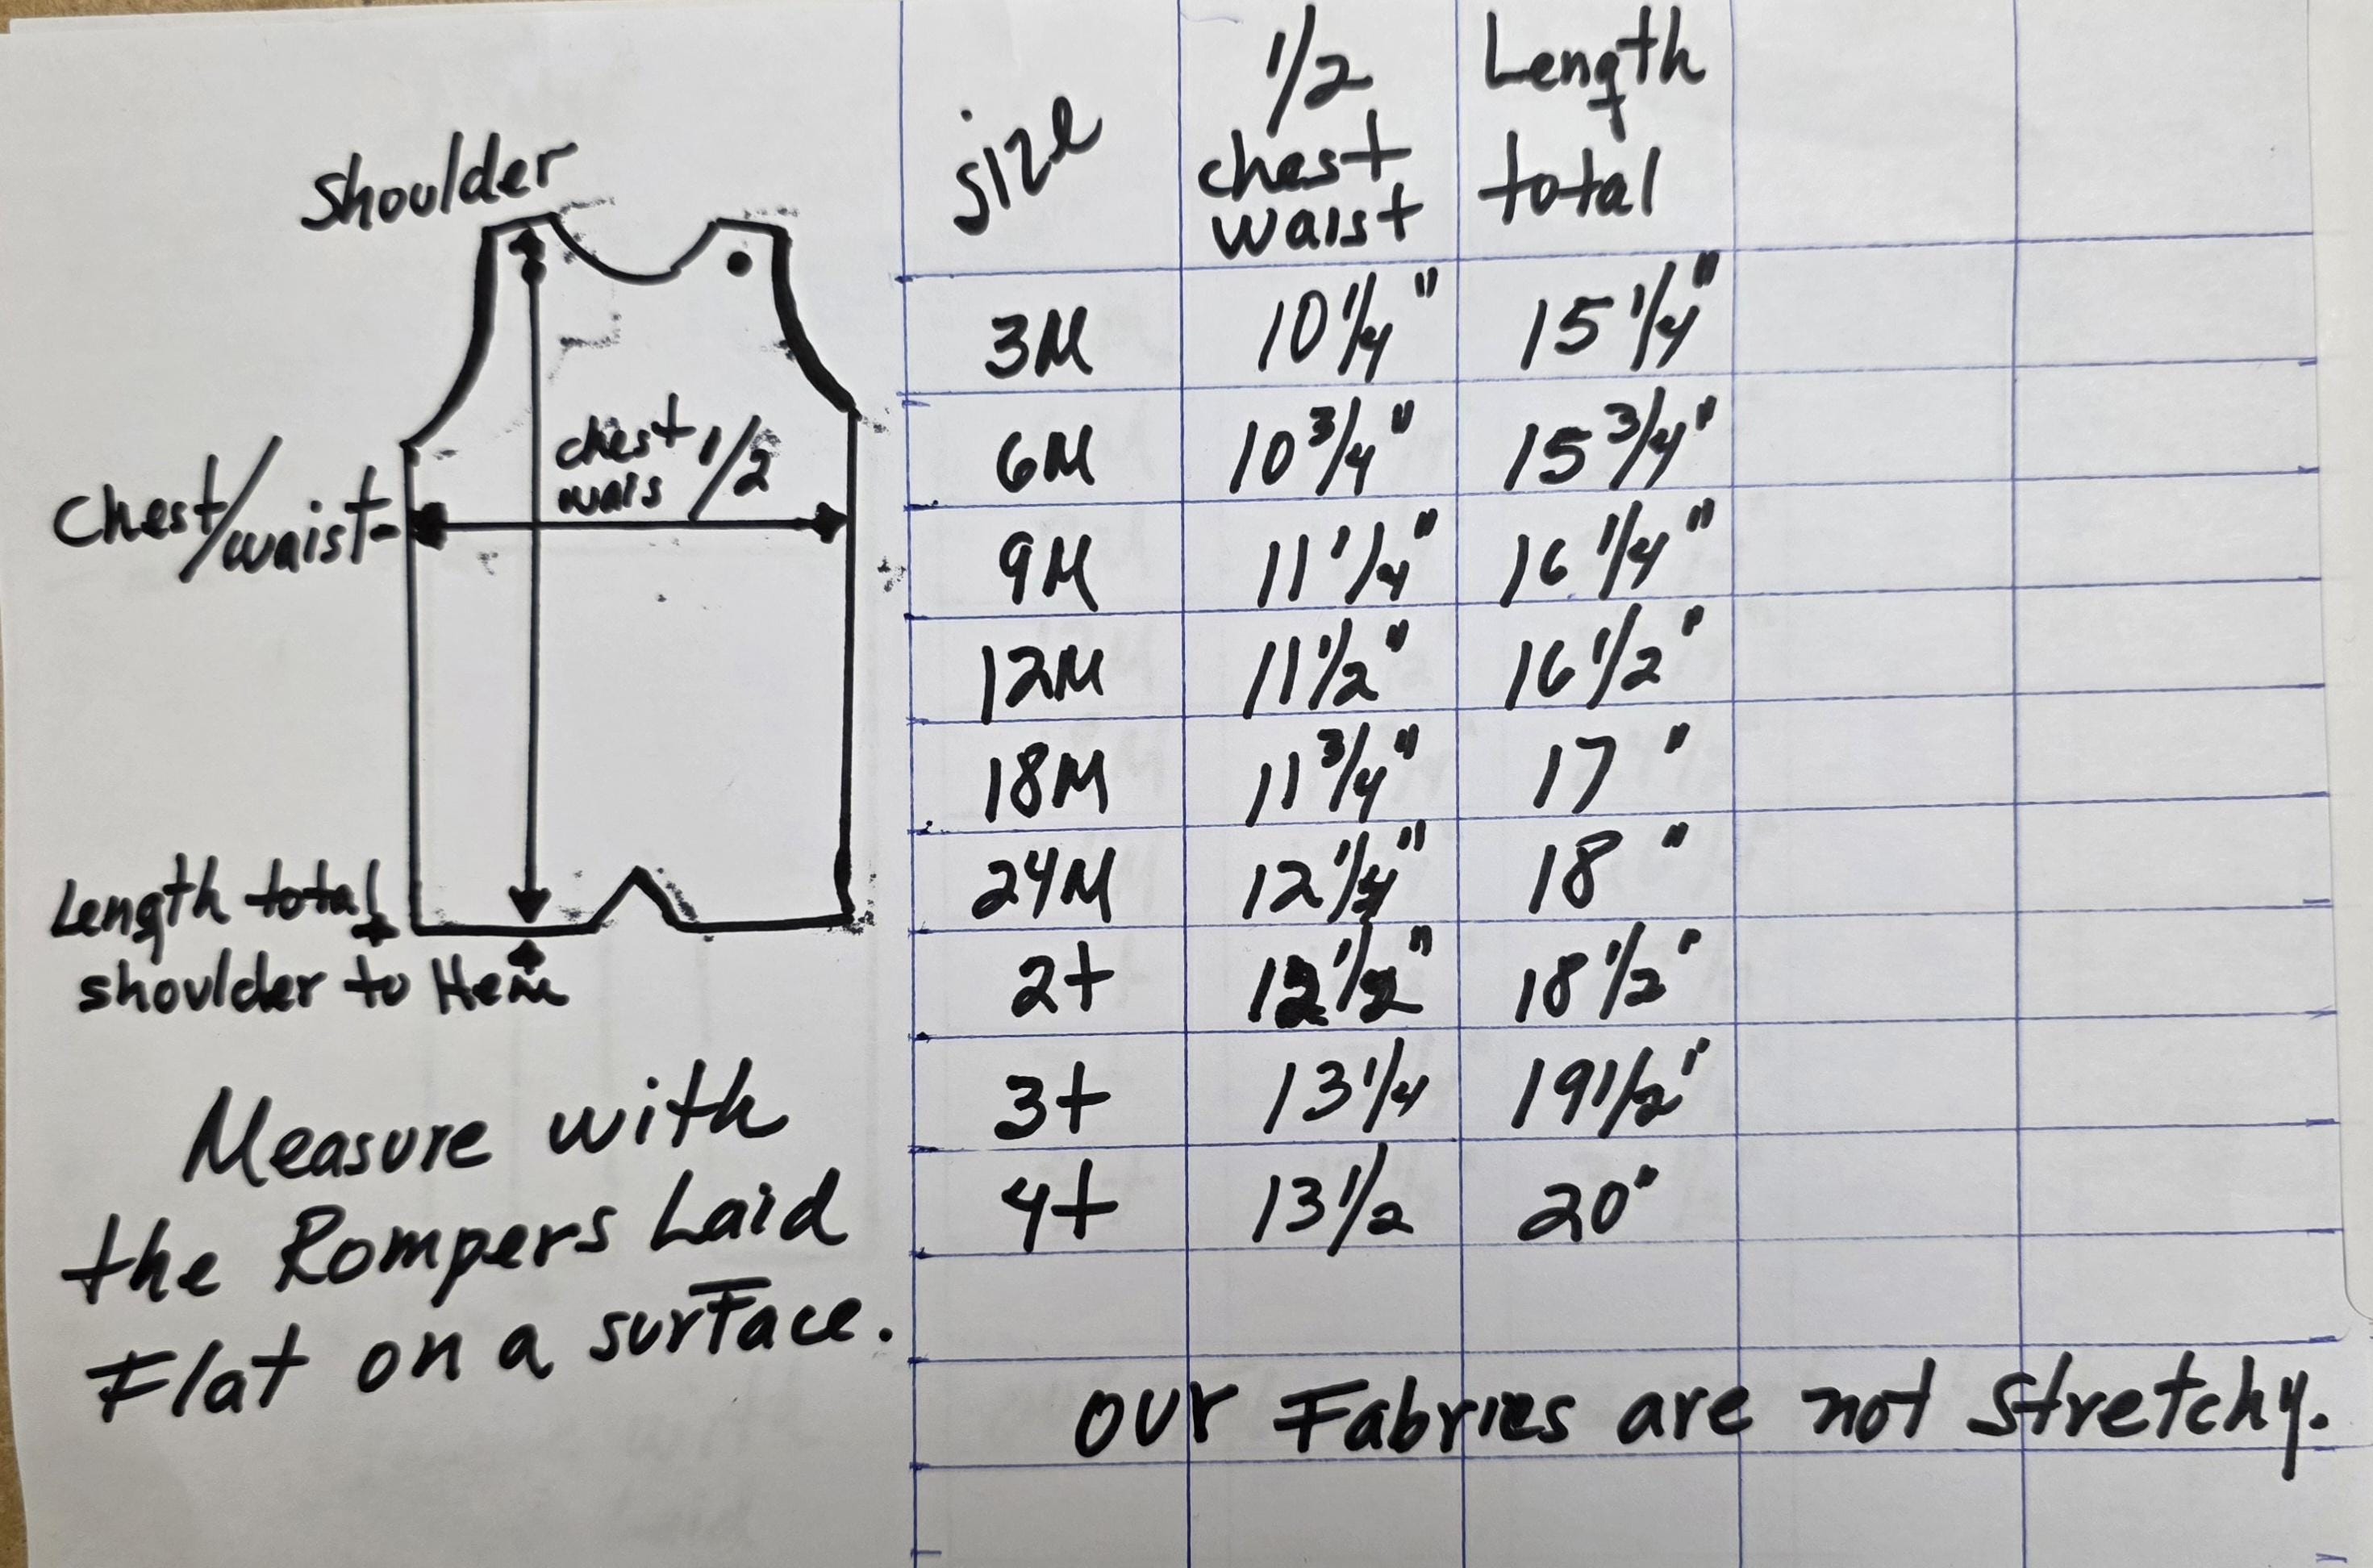 Shoulder
chest 1/2
wais
Chest/waist
Length total
shoulder to Hem
Measure with
the Rompers Laid
Flat on a surface.
size 1/2 chest waist Length total
3M 10 1/4" 15 1/4"
6M 10 3/4" 15 3/4"
9M 11 1/4" 16 1/4"
12M 11 1/2" 16 1/2"
18M 11 3/4" 17"
24M 12 1/4" 18"
2t 12 1/2" 18 1/2"
3t 13 1/4 19 1/2"
4t 13 1/2 20"
our Fabrics are not stretchy.